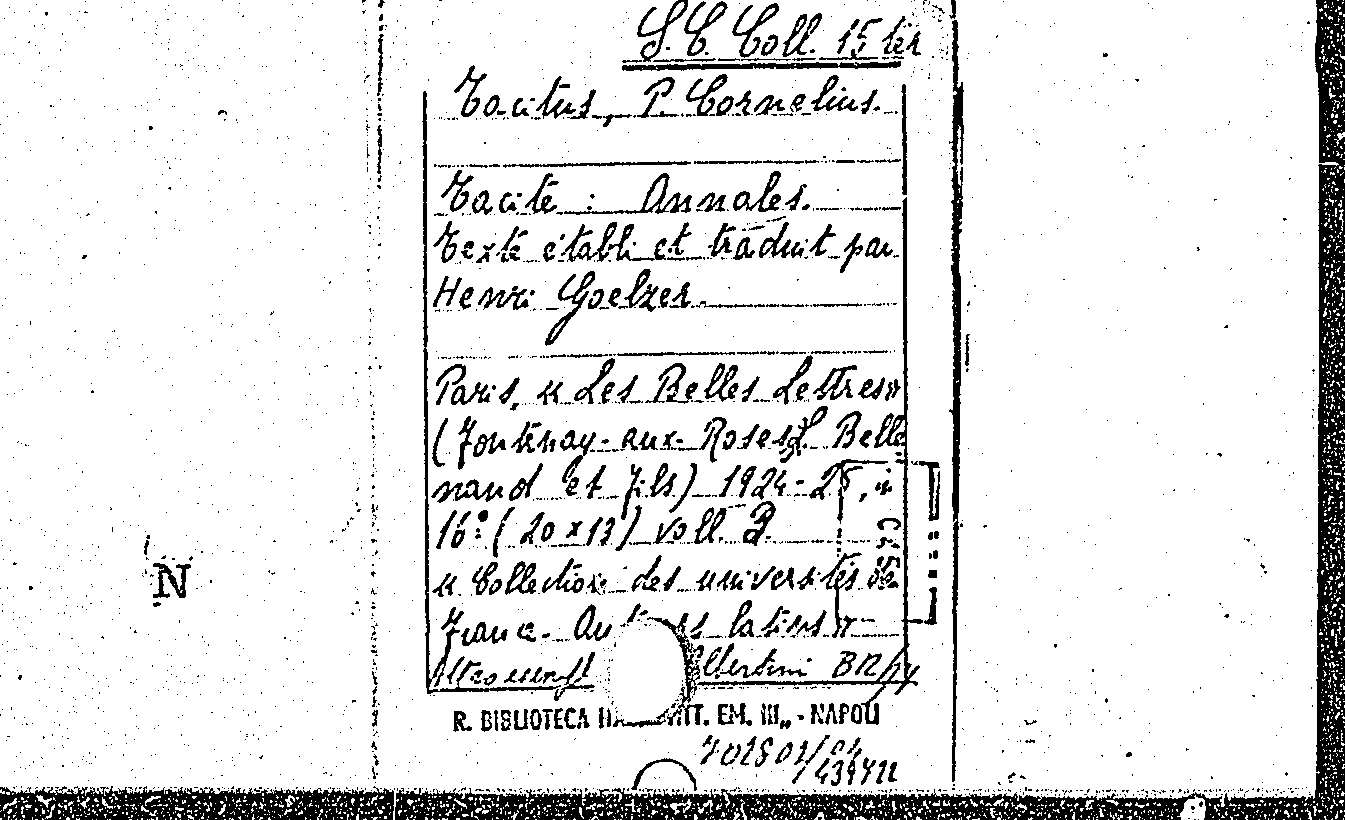 S. C. Coll. 15 ter
Tacitus, P. Cornelius.
Tacite : Annales.
Texte établi et traduit par
Henri Goelzer.
Paris, « Les Belles Lettres »
(Fontenay-aux-Roses, L. Belle
nand et Fils) 1924-25, in
16° (20 x 13) voll. 3.
« Collection des universités de
France. latins »
Altro esempl Albertini
R. BIBLIOTECA VITT. EM. III„ - NAPOLI
N